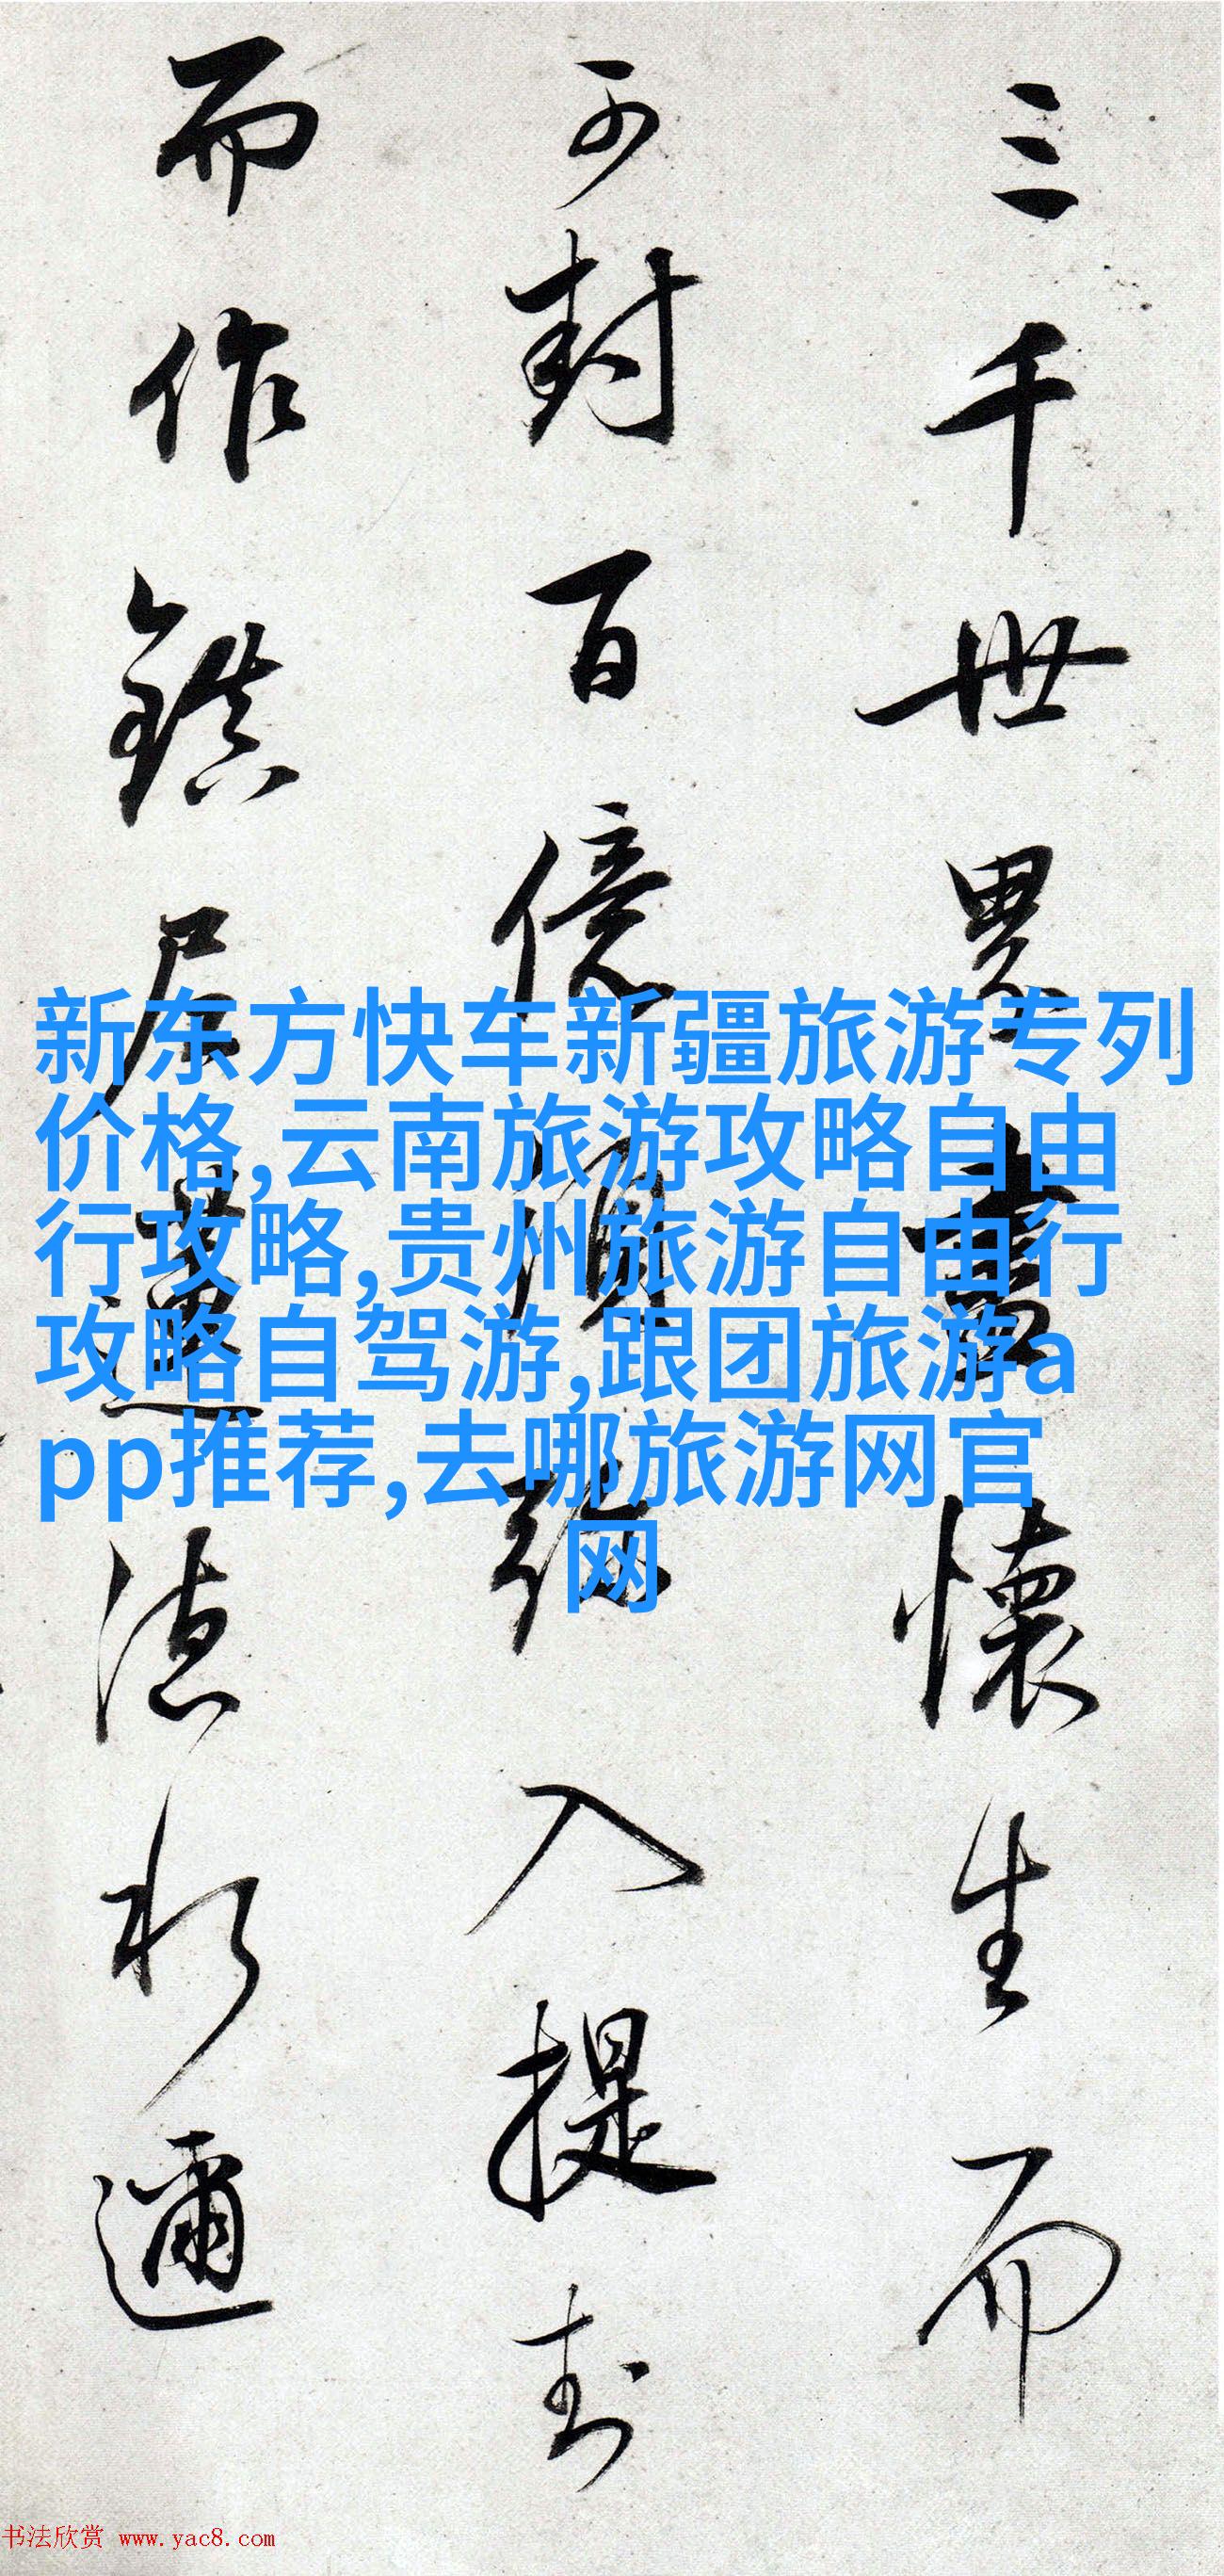 三千世界盡懷生而
可封百億須弥入提封
而作鎮居
邇
新东方快车新疆旅游专列
价格,云南旅游攻略自由
行攻略,贵州旅游自由行
攻略自驾游,跟团旅游a
pp推荐,去哪旅游网官
网
书法欣赏 www.yac8.com